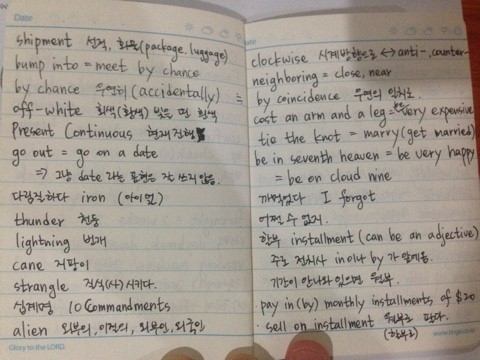 Date
shipment 선적, 화물(package, luggage)
bump into = meet by chance
by chance 우연히 (accidentally)
off-white 회색(황색) 빛을 띤 흰색
Present Continuous 현재진행
go out = go on a date
⇒ 그냥 date 라는 표현은 잘 쓰지 않음.
다림질하다 iron (아이언)
thunder 천둥
lightning 번개
cane 지팡이
strangle 질식(사)시키다.
십계명 10 Commandments
alien 외부의, 이질의, 외부인, 외국인
Glory to the LORD.
Date
clockwise 시계방향으로 ↔ anti-, counter-
neighboring = close, near
by coincidence 우연의 일치로
cost an arm and a leg = very expensive
tie the knot = marry (get married)
be in seventh heaven = be very happy
= be on cloud nine
까먹었다 I forgot
어쩔 수 없지.
할부 installment (can be an adjective)
주로 전치사 in이나 by가 앞에옴.
기간이 안나와 있으면 할부.
· pay in (by) monthly installments of $20
· sell on installment 할부로 판다.
(할부로)